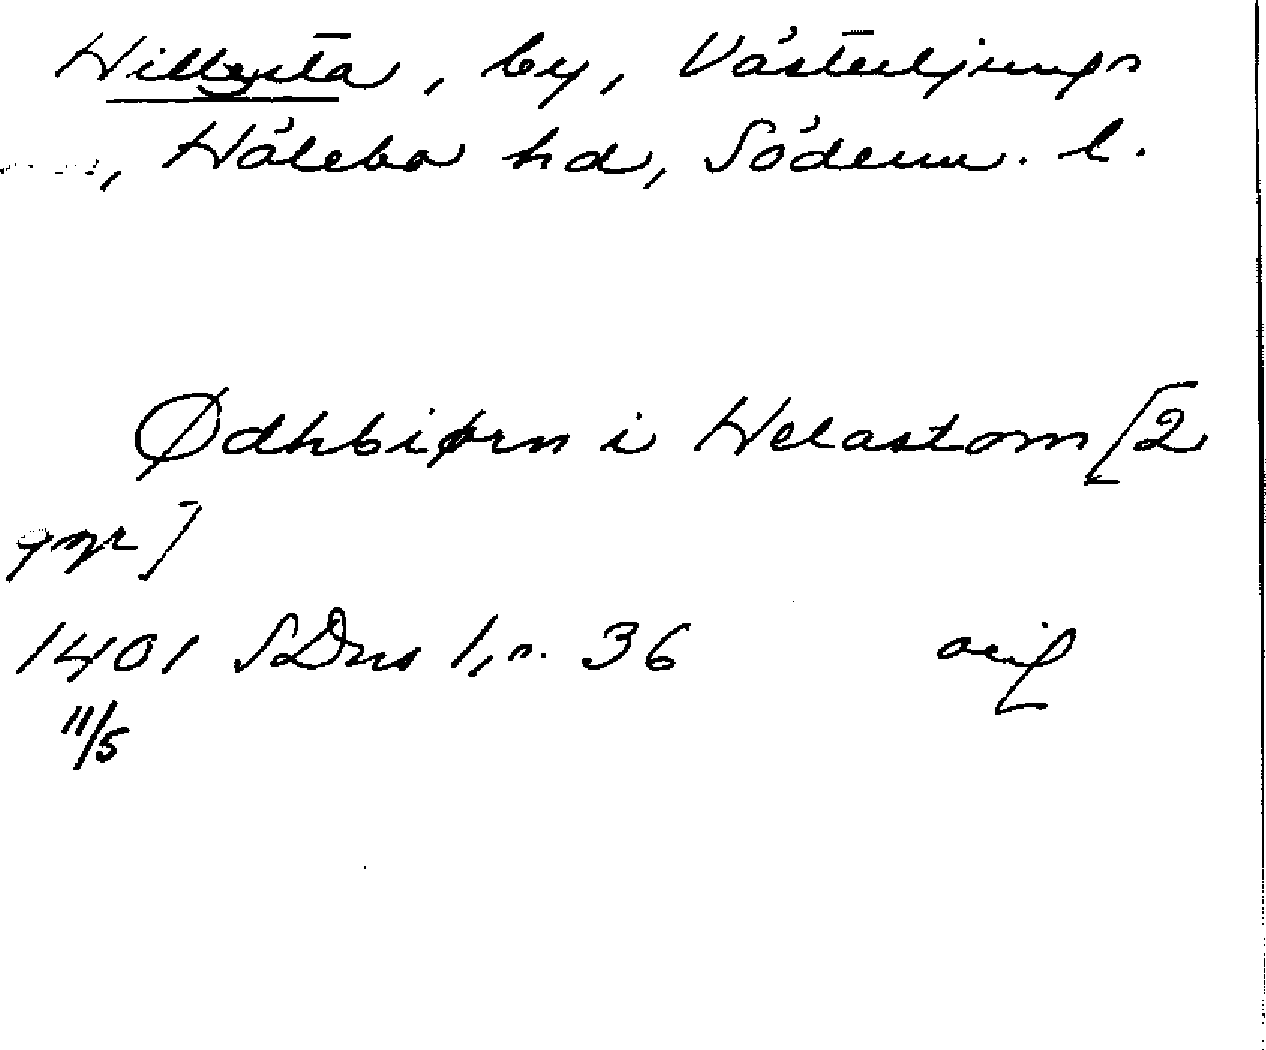 Hillesta, by, Västerljungs
, Hölebo hd, Söderm. l.
Ødhbiørn i Helastom [2
ggr]
1401 SDns 1, n. 36 orig
11/5